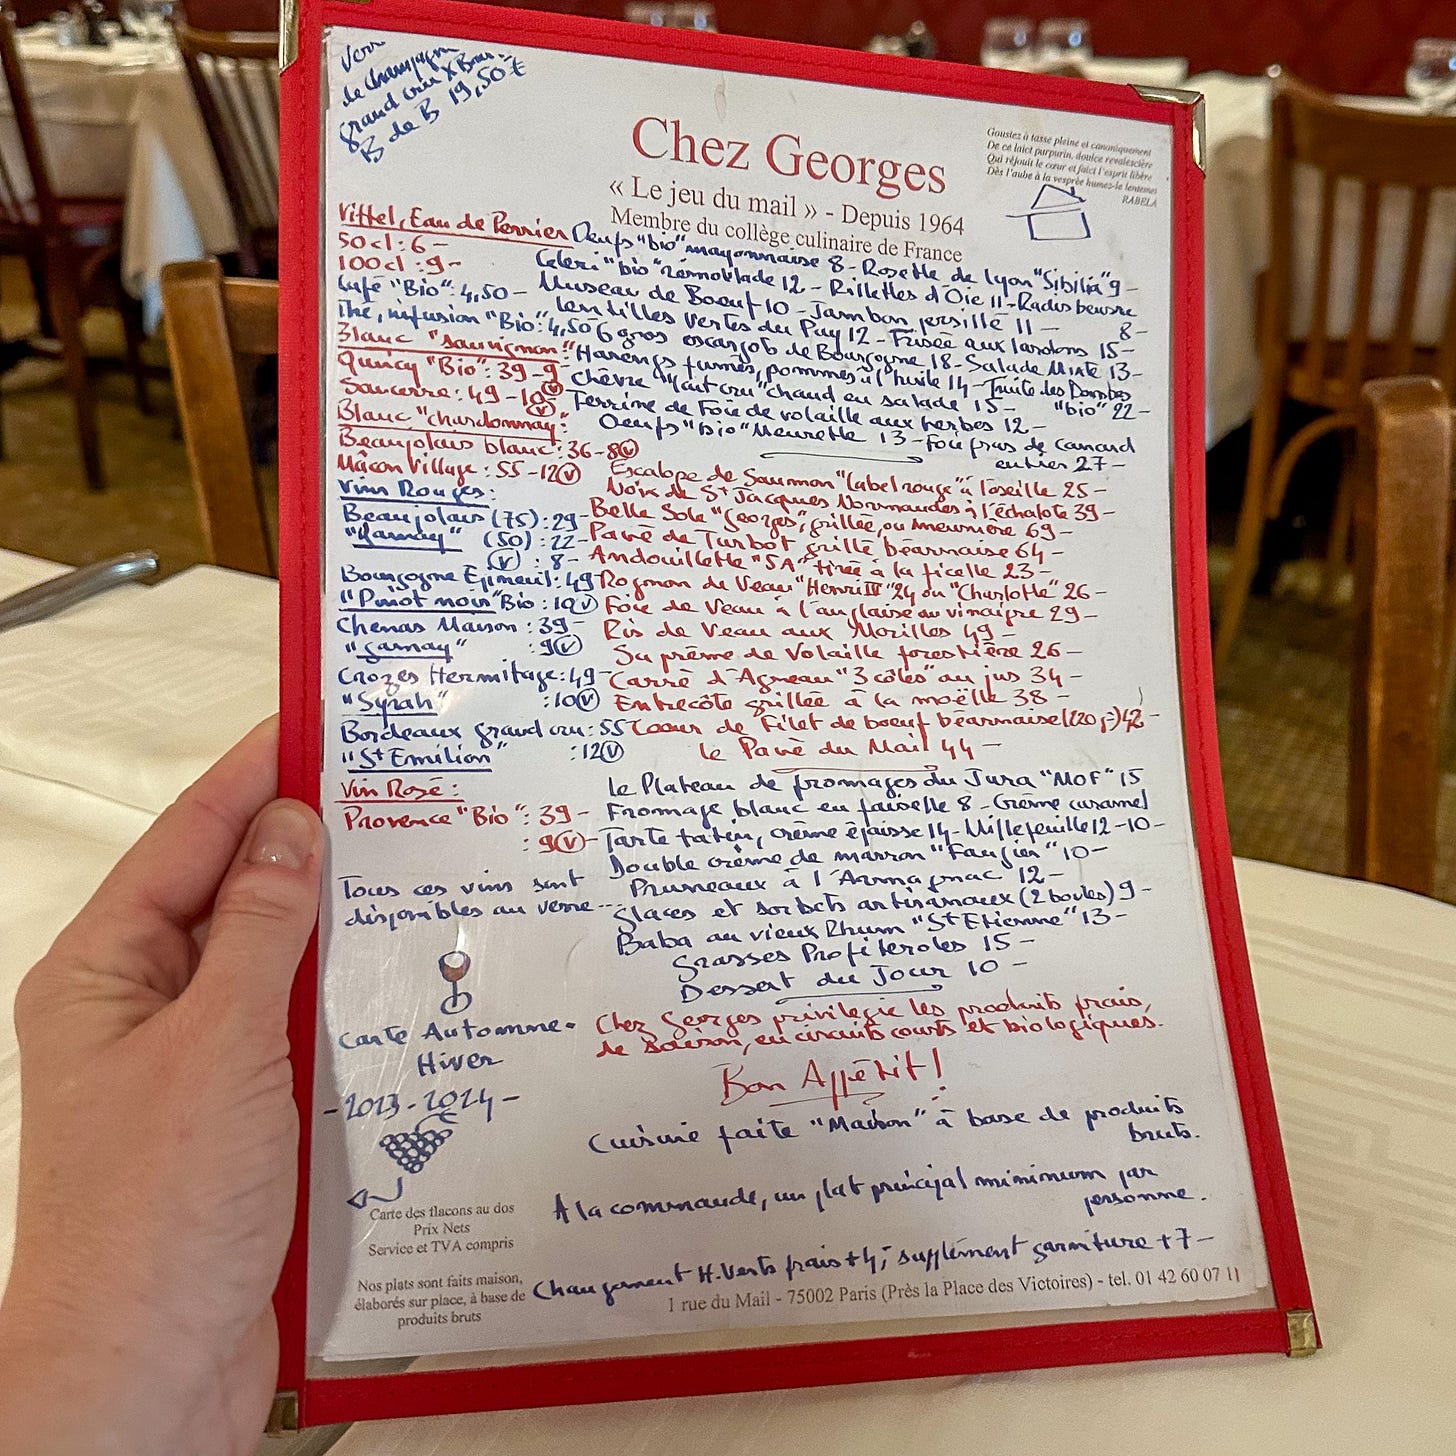 Verre
de champagne
grand cru X Bour
B de B 19,50 €
Chez Georges
« Le jeu du mail » - Depuis 1964
Membre du collège culinaire de France
Goustez à tasse pleine et canoniquement
De ce laict purpurin, doulce revalescière
Qui réjouit le cœur et faict l'esprit libère
Dès l'aube à la vesprée humez-le lentemes
RABELA
Vittel, Eau de Perrier
50 cl : 6 -
100 cl : 9 -
Café "Bio" : 4,50 -
Thé, infusion "Bio" : 4,50
Blanc "sauvignon" :
Quincy "Bio" : 39 - 9 -
Sancerre : 49 - 10 V
Blanc "chardonnay" :
Beaujolais blanc : 36 - 8 V
Mâcon Village : 55 - 12 V
Vins Rouges :
Beaujolais (75) : 29 -
"Gamay" (50) : 22 -
V : 8 -
Bourgogne Epineuil : 49
"Pinot noir" Bio : 10 V
Chenas Maison : 39 -
"gamay" 9 V
Crozes Hermitage : 49 -
"Syrah" : 10 V
Bordeaux grand cru : 55
"St Emilion" : 12 V
Vin Rosé :
Provence "Bio" : 39 -
: 9 V -
Tous ces vins sont
disponibles au verre ---
Carte Automne -
Hiver
- 2023 - 2024 -
Carte des flacons au dos
Prix Nets
Service et TVA compris
Nos plats sont faits maison,
élaborés sur place, à base de
produits bruts
Oeufs "bio" mayonnaise 8 - Rosette de Lyon "Sibilia" 9 -
Céleri "bio" rémoulade 12 - Rillettes d'Oie 11 - Radis beurre
8 -
Museau de Boeuf 10 - Jambon persillé 11 -
Lentilles vertes du Puy 12 - Frisée aux lardons 15 -
6 gros escargots de Bourgogne 18 - Salade Mixte 13 -
Harengs fumés, pommes à l'huile 14 - Truite des Dombes
"bio" 22 -
Chèvre "lait cru" chaud en salade 15 -
Terrine de Foie de volaille aux herbes 12 -
Oeufs "bio" Meurette 13 - Foie gras de canard
entier 27 -
Escalope de Saumon "label rouge" à l'oseille 25 -
Noix de St Jacques Normandes à l'échalote 39 -
Belle Sole "Georges", grillée, ou meunière 69 -
Pavé de Turbot grillé béarnaise 64 -
Andouillette "5A" tirée à la ficelle 23 -
Rognon de Veau "Henri IV" 24 ou "Charlotte" 26 -
Foie de Veau à l'anglaise ou vinaigre 29 -
Ris de Veau aux Morilles 49 -
Suprême de Volaille forestière 26 -
Carré d'Agneau "3 côtes" au jus 34 -
Entrecôte grillée à la moëlle 38 -
Coeur de Filet de boeuf béarnaise (220 g) 42 -
Le Pavé du Mail 44 -
Le Plateau de fromages du Jura "MOF" 15
Fromage blanc en faisselle 8 - Crème caramel
Tarte tatin, crème épaisse 14 - Millefeuille 12 - 10 -
Double crème de marron "Faugier" 10 -
Pruneaux à l'Armagnac 12 -
Glaces et sorbets artisanaux (2 boules) 9 -
Baba au vieux Rhum "St Etienne" 13 -
Grosses Profiteroles 15 -
Dessert du Jour 10 -
Chez Georges privilégie les produits frais,
de saison, en circuits courts et biologiques.
Bon Appétit !
Cuisine faite "Maison" à base de produits
bruts.
A la commande, un plat principal minimum par
personne.
Changement H. Verts frais + 4 ; supplément garniture + 7 -
1 rue du Mail - 75002 Paris (Près la Place des Victoires) - tel. 01 42 60 07 11